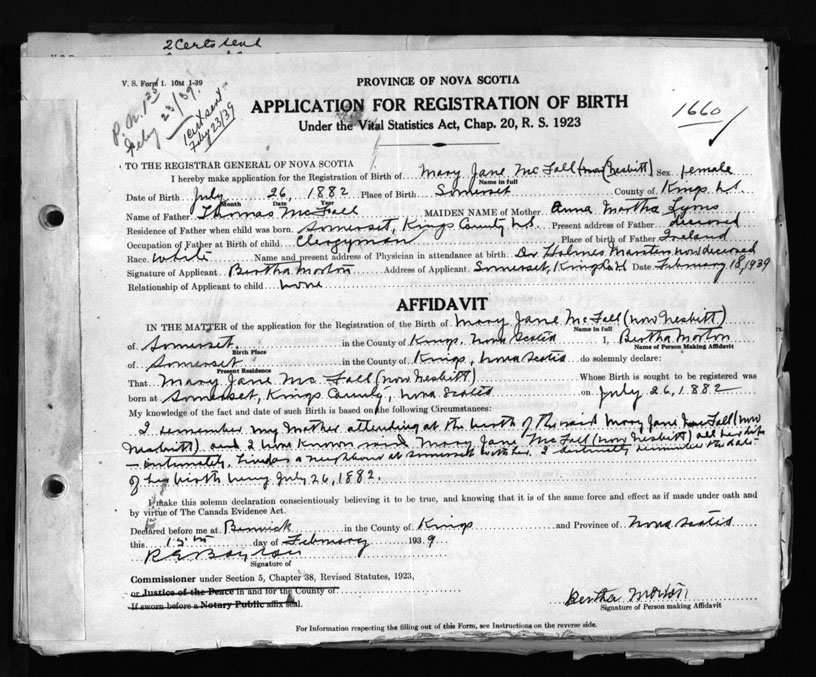 2 Certs sent
V. S. Form 1. 10M 1-39
PROVINCE OF NOVA SCOTIA
APPLICATION FOR REGISTRATION OF BIRTH
Under the Vital Statistics Act, Chap. 20, R. S. 1923
1660
Feby 23/39
1 cert sent
Feby 23/39
TO THE REGISTRAR GENERAL OF NOVA SCOTIA
I hereby make application for the Registration of Birth of Mary Jane McFall (now Nesbitt) Sex female
Name in full
Date of Birth July 26, 1882 Place of Birth Somerset County of Kings
Month Date Year
Name of Father Thomas McFall MAIDEN NAME of Mother Anna Martha Lyons
Residence of Father when child was born Somerset, Kings County N.S. Present address of Father deceased
Occupation of Father at Birth of child Clergyman Place of birth of Father Ireland
Race White Name and present address of Physician in attendance at birth. Dr Holmes Masters now deceased
Signature of Applicant Bertha Morton Address of Applicant Somerset, Kings Date February 18, 1939
Relationship of Applicant to child none
AFFIDAVIT
IN THE MATTER of the application for the Registration of the Birth of Mary Jane McFall (now Nesbitt)
Name in full
of Somerset in the County of Kings, Nova Scotia I, Bertha Morton
Birth Place Name of Person Making Affidavit
of Somerset in the County of Kings, Nova Scotia do solemnly declare:
Present Residence
That Mary Jane McFall (now Nesbitt) Whose Birth is sought to be registered was
born at Somerset, Kings County, Nova Scotia on July 26, 1882
My knowledge of the fact and date of such Birth is based on the following Circumstances:
I remember my Mother attending at the birth of the said Mary Jane McFall (now
Nesbitt) and I have known said Mary Jane McFall (now Nesbitt) all her life
intimately, lived as a neighbour at Somerset with her. I distinctly remember the date
of her birth being July 26, 1882.
I make this solemn declaration conscientiously believing it to be true, and knowing that it is of the same force and effect as if made under oath and
by virtue of The Canada Evidence Act.
Declared before me at Berwick in the County of Kings and Province of Nova Scotia
this day of February 1939
Signature of
Commissioner under Section 5, Chapter 38, Revised Statutes, 1923,
or Justice of the Peace in and for the County of
If sworn before a Notary Public affix seal.
Bertha Morton
Signature of Person making Affidavit
For Information respecting the filling out of this Form, see Instructions on the reverse side.